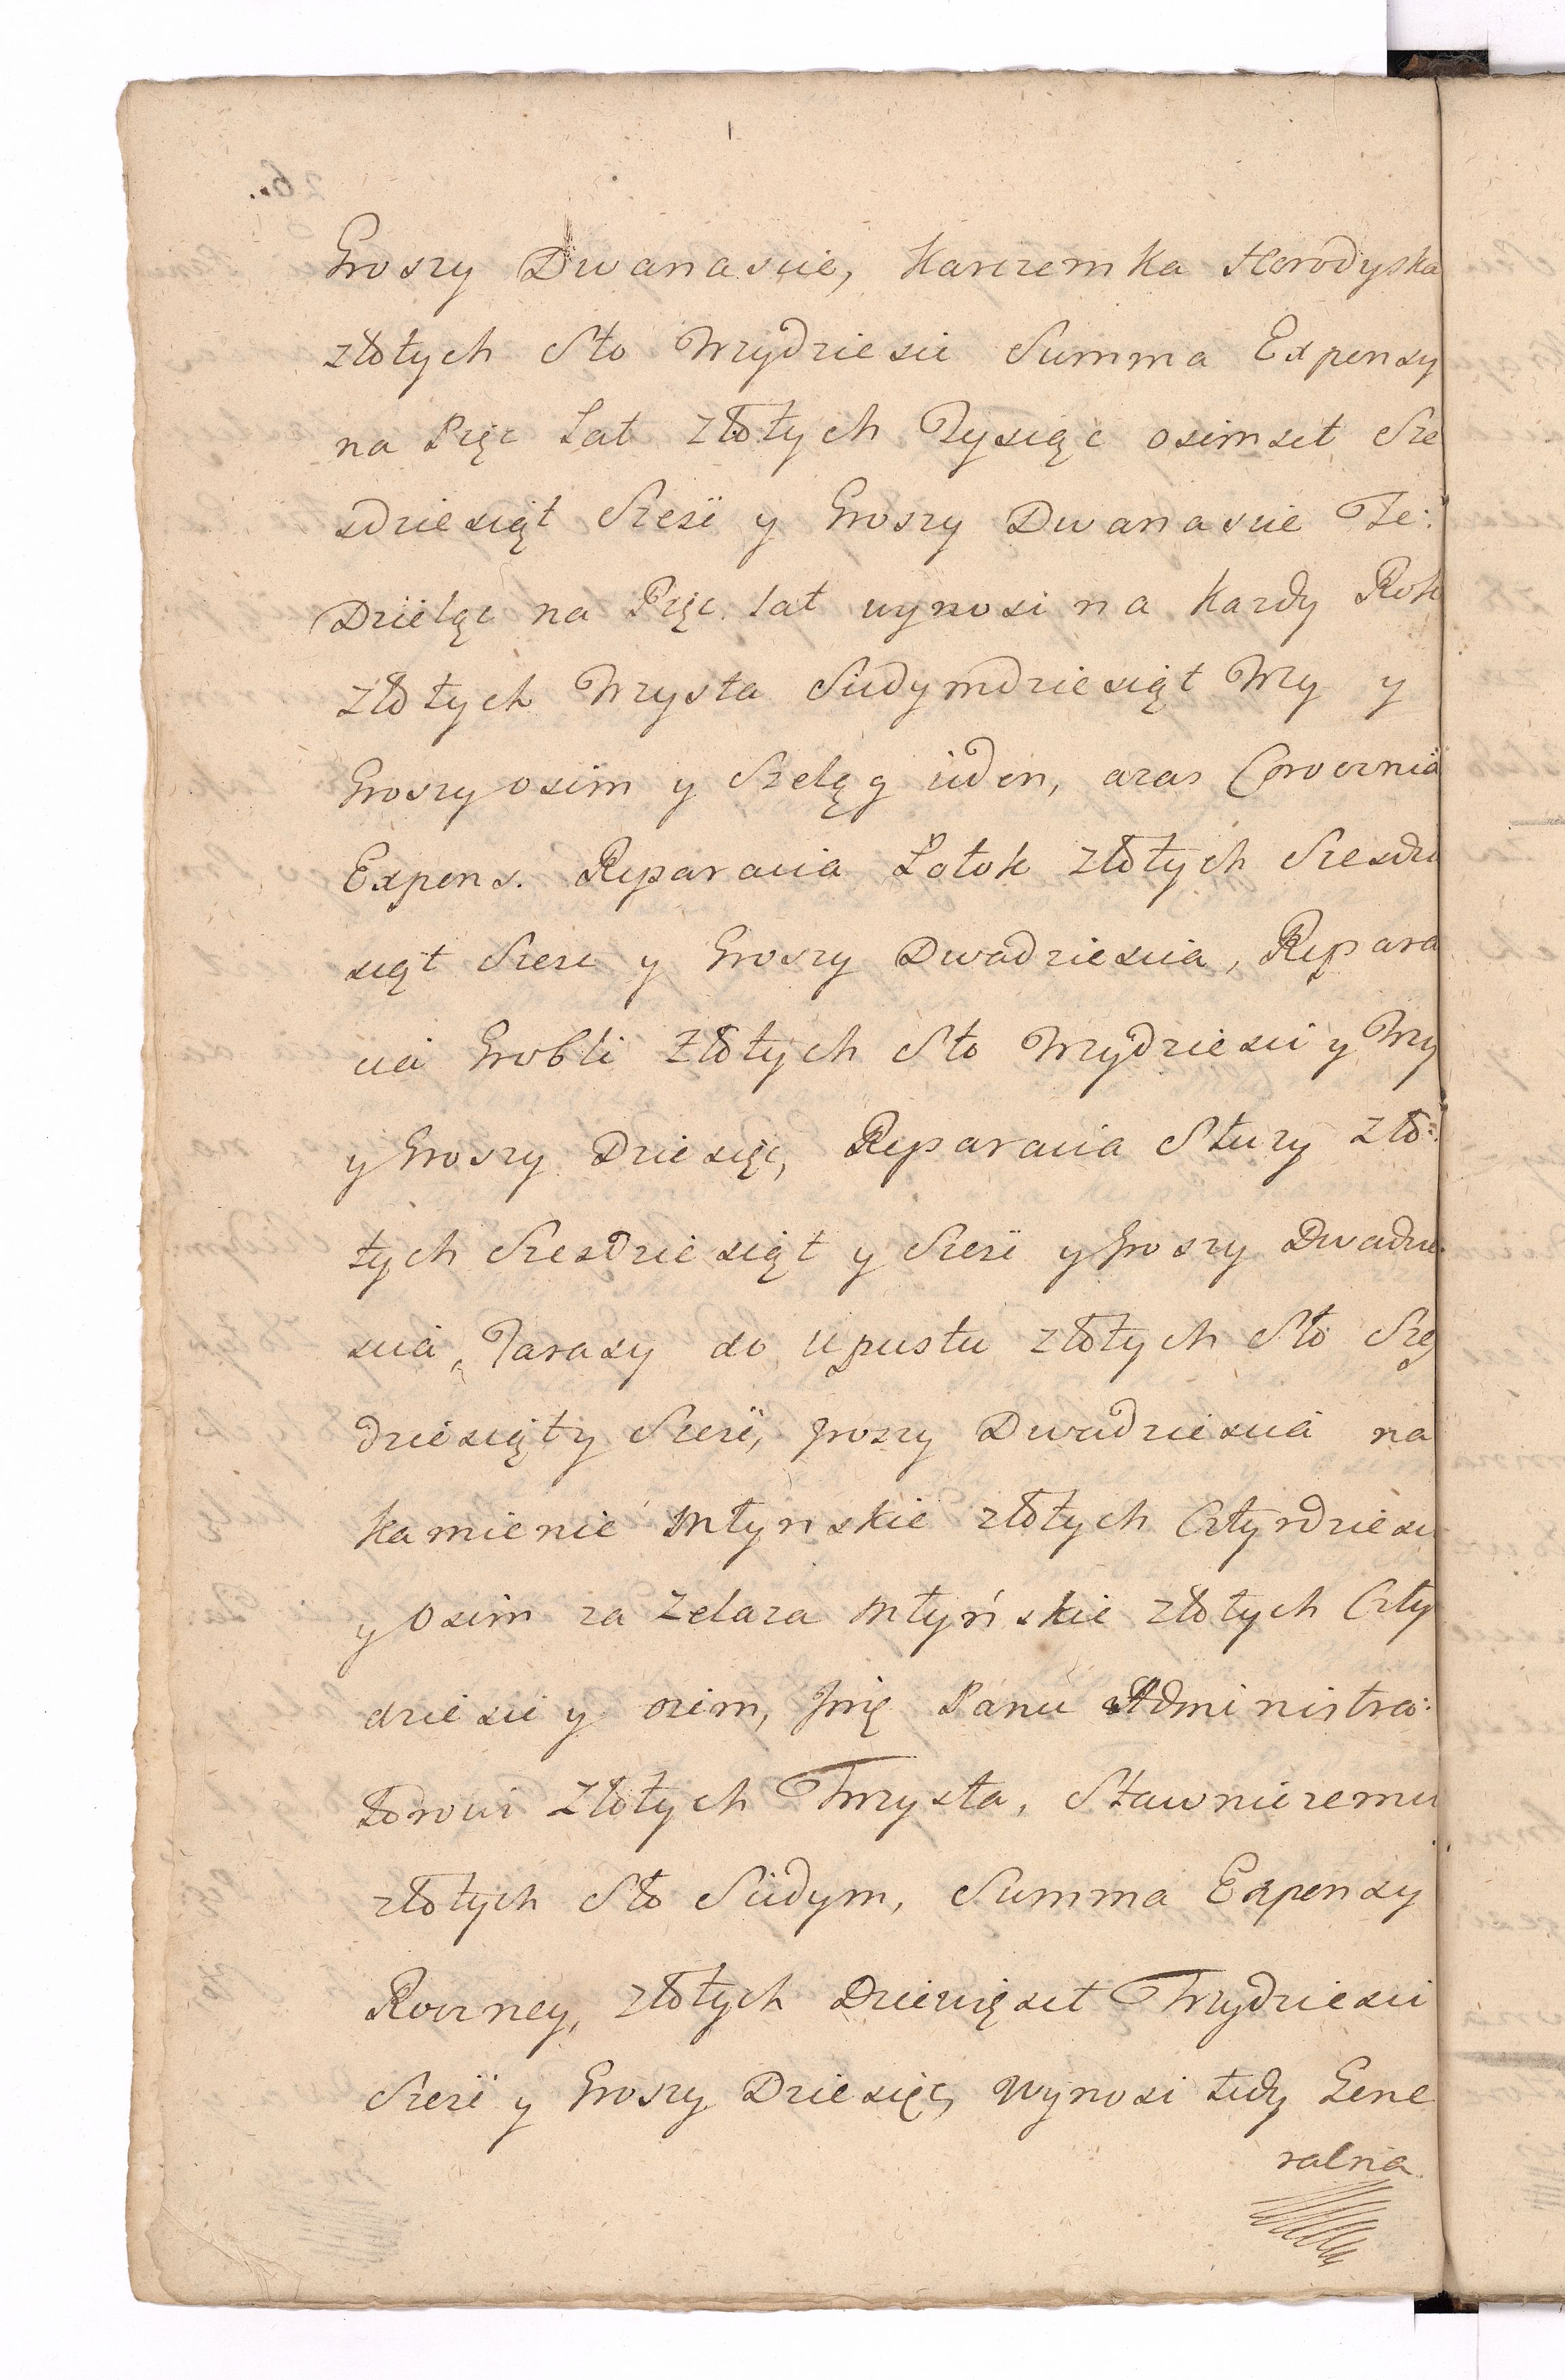 Groszy Dwanascie, Karczemka Horodyska
złotych Sto Trzydziesci Summa Expensy
na Pięc Lat złotych Tysiąc osimset Sze
sdziesiąt Szesc y Groszy Dwanascie Te:
Dzieląc na Pięc lat wynosi na kazdy Rok
złotych Trzysta Siedymdziesiąt Trzy y
Groszy osim y Szeląg ieden, azas Coroczna
Expens. Reparacia Łotok złotych Szesdzie
siąt Szesc y Groszy Dwadziescia, Repara
cia Grobli złotych Sto Trzydziesci y Trzy
y Groszy Dziesięc, Reparacia Sluzy zło:
tych Szesdziesiąt y Szesc y Groszy Dwadzie:
scia, Tarasy do upustu złotych Sto Szes
dziesiąty Szesc, groszy Dwadziescia na
kamienie Młynskie złotych Cztyrdziesci
y Osim za Zelaza Młyńskie złotych Czty
dziesci y osim, Jmę Panu Administra:
torowi złotych Trzysta, Stawniczemu
złotych Sto Siedym, Summa Expensy
Roczney, złotych Dziewięset Trzydziesci
Szesc y Groszy Dziesięc, wynosi tedy Gene
ralna